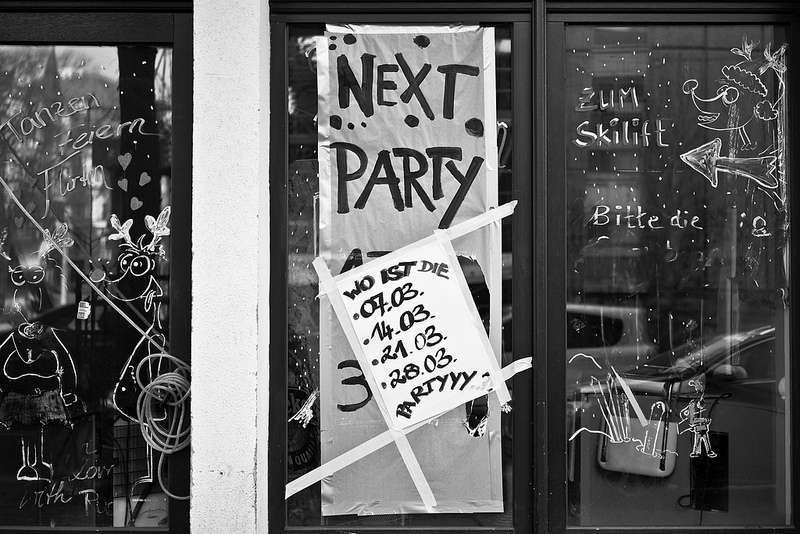 Tanzen
Feiern
NEXT
PARTY
3
WO IST DIE
• 07.03.
• 14.03.
• 21.03.
• 28.03.
PARTYYY
ZUM
Skilift
Bitte die
with